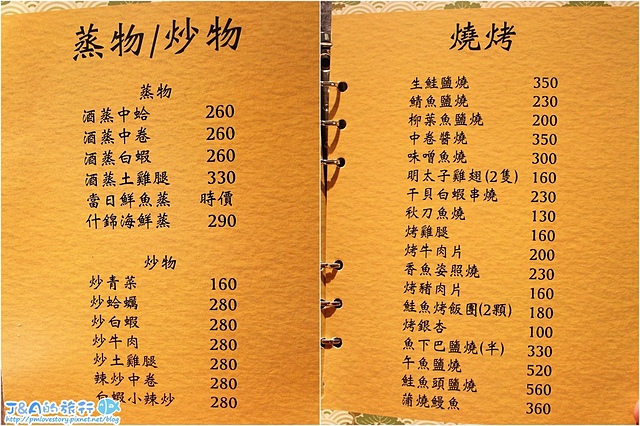 蒸物/炒物
蒸物
酒蒸中蛤 260
酒蒸中卷 260
酒蒸白蝦 260
酒蒸土雞腿 330
當日鮮魚蒸 時價
什錦海鮮蒸 290
炒物
炒青菜 160
炒蛤蠣 280
炒白蝦 280
炒牛肉 280
炒土雞腿 280
辣炒中卷 280
白蝦小辣炒 280
J&A的旅行
http://pmlovestory.pixnet.net/blog
燒烤
生鮭鹽燒 350
鯖魚鹽燒 230
柳葉魚鹽燒 200
中卷醬燒 350
味噌魚燒 300
明太子雞翅(2隻) 160
干貝白蝦串燒 230
秋刀魚燒 130
烤雞腿 160
烤牛肉片 200
香魚姿照燒 230
烤豬肉片 160
鮭魚烤飯團(2顆) 180
烤銀杏 100
魚下巴鹽燒(半) 330
午魚鹽燒 520
鮭魚頭鹽燒 560
蒲燒鰻魚 360